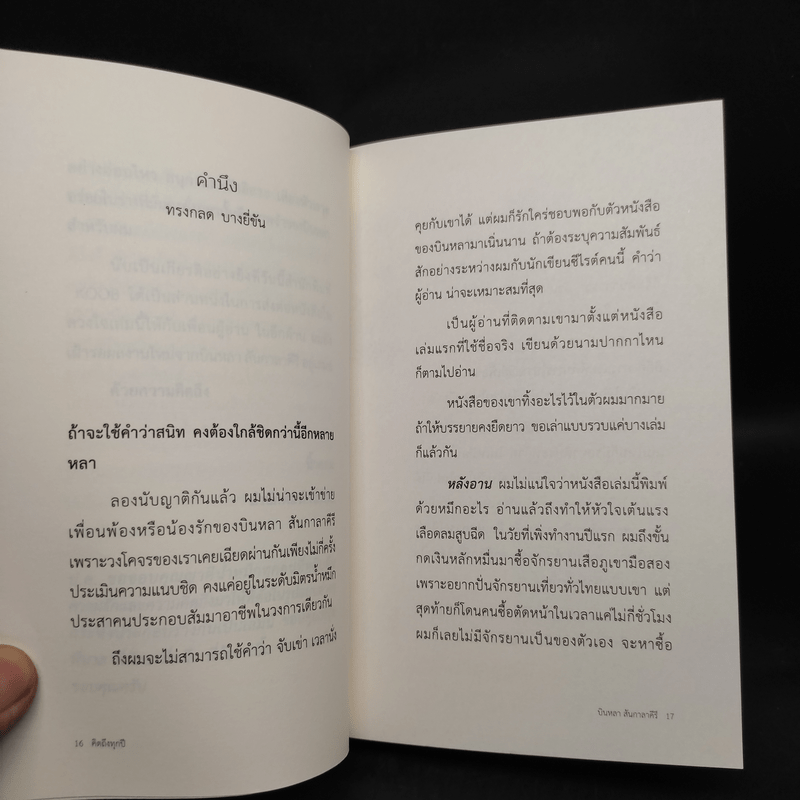 คำนึง
ทรงกลด บางยี่ขัน
ถ้าจะใช้คำว่าสนิท คงต้องใกล้ชิดกว่านี้อีกหลาย
หลา
ลองนับญาติกันแล้ว ผมไม่น่าจะเข้าข่าย
เพื่อนพ้องหรือน้องรักของบินหลา สันกาลาคีรี
เพราะวงโคจรของเราเคยเฉียดผ่านกันเพียงไม่กี่ครั้ง
ประเมินความแนบชิด คงแค่อยู่ในระดับมิตรน้ำหมึก
ประสาคนประกอบสัมมาอาชีพในวงการเดียวกัน
ถึงผมจะไม่สามารถใช้คำว่า จับเข่า เวลานั่ง
16 คิดถึงทุกปี
คุยกับเขาได้ แต่ผมก็รักใคร่ชอบพอกับตัวหนังสือ
ของบินหลามาเนิ่นนาน ถ้าต้องระบุความสัมพันธ์
สักอย่างระหว่างผมกับนักเขียนซีไรต์คนนี้ คำว่า
ผู้อ่าน น่าจะเหมาะสมที่สุด
เป็นผู้อ่านที่ติดตามเขามาตั้งแต่หนังสือ
เล่มแรกที่ใช้ชื่อจริง เขียนด้วยนามปากกาไหน
ก็ตามไปอ่าน
หนังสือของเขาทิ้งอะไรไว้ในตัวผมมากมาย
ถ้าให้บรรยายคงยืดยาว ขอเล่าแบบรวบแค่บางเล่ม
ก็แล้วกัน
หลังอาน ผมไม่แน่ใจว่าหนังสือเล่มนี้พิมพ์
ด้วยหมึกอะไร อ่านแล้วถึงทำให้หัวใจเต้นแรง
เลือดลมสูบฉีด ในวัยที่เพิ่งทำงานปีแรก ผมถึงขั้น
กดเงินหลักหมื่นมาซื้อจักรยานเสือภูเขามือสอง
เพราะอยากปั่นจักรยานเที่ยวทั่วไทยแบบเขา แต่
สุดท้ายก็โดนคนซื้อตัดหน้าในเวลาแค่ไม่กี่ชั่วโมง
ผมก็เลยไม่มีจักรยานเป็นของตัวเอง จะหาซื้อ
บินหลา สันกาลาคีรี 17